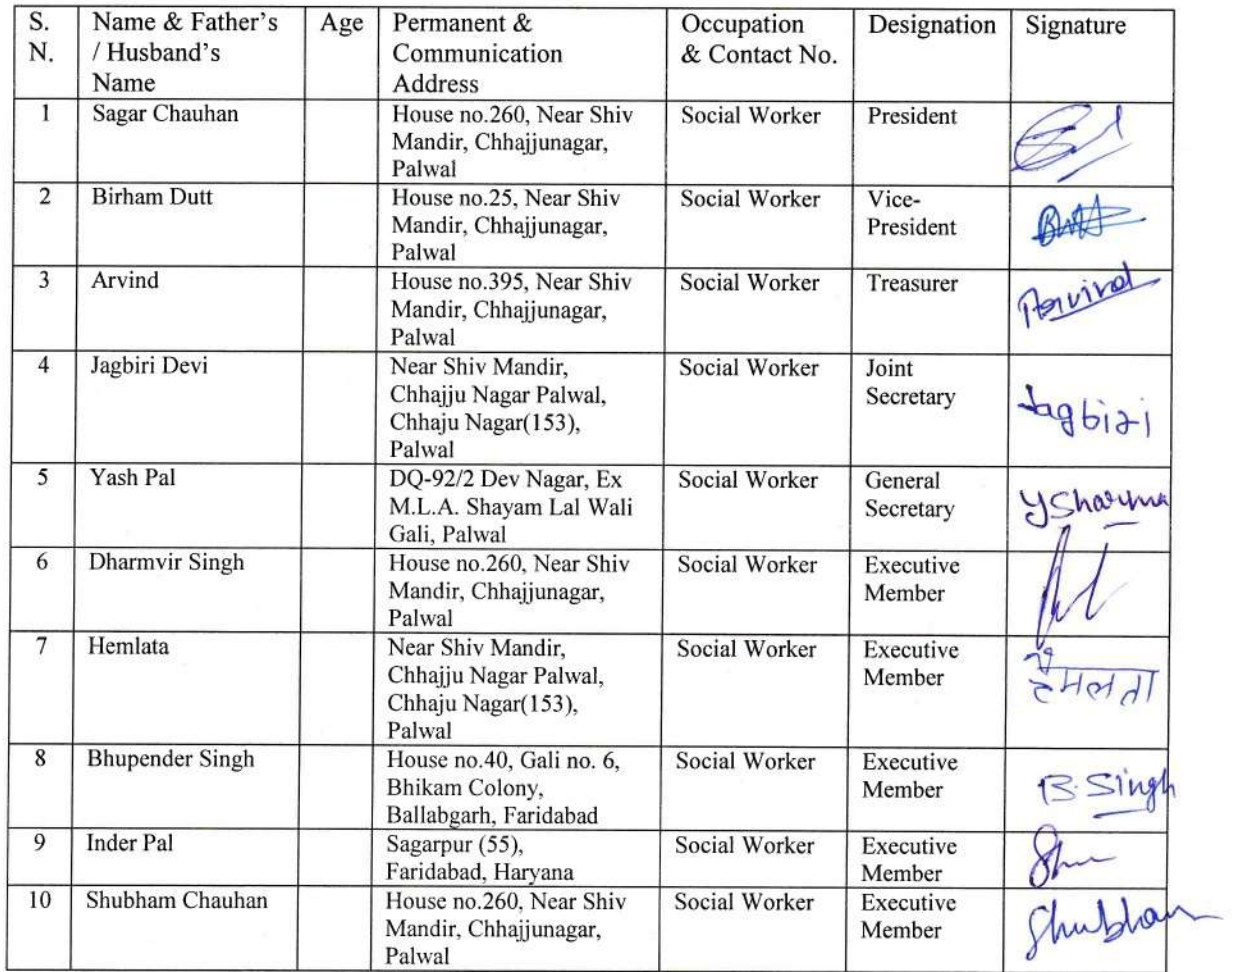 S. N. Name & Father's / Husband's Name Age Permanent & Communication Address Occupation & Contact No. Designation Signature
1 Sagar Chauhan House no.260, Near Shiv Mandir, Chhajjunagar, Palwal Social Worker President
2 Birham Dutt House no.25, Near Shiv Mandir, Chhajjunagar, Palwal Social Worker Vice-President
3 Arvind House no.395, Near Shiv Mandir, Chhajjunagar, Palwal Social Worker Treasurer Arvind
4 Jagbiri Devi Near Shiv Mandir, Chhajju Nagar Palwal, Chhaju Nagar(153), Palwal Social Worker Joint Secretary Jagbiri
5 Yash Pal DQ-92/2 Dev Nagar, Ex M.L.A. Shayam Lal Wali Gali, Palwal Social Worker General Secretary YSharma
6 Dharmvir Singh House no.260, Near Shiv Mandir, Chhajjunagar, Palwal Social Worker Executive Member
7 Hemlata Near Shiv Mandir, Chhajju Nagar Palwal, Chhaju Nagar(153), Palwal Social Worker Executive Member हेमलता
8 Bhupender Singh House no.40, Gali no. 6, Bhikam Colony, Ballabgarh, Faridabad Social Worker Executive Member B. Singh
9 Inder Pal Sagarpur (55), Faridabad, Haryana Social Worker Executive Member
10 Shubham Chauhan House no.260, Near Shiv Mandir, Chhajjunagar, Palwal Social Worker Executive Member Shubham